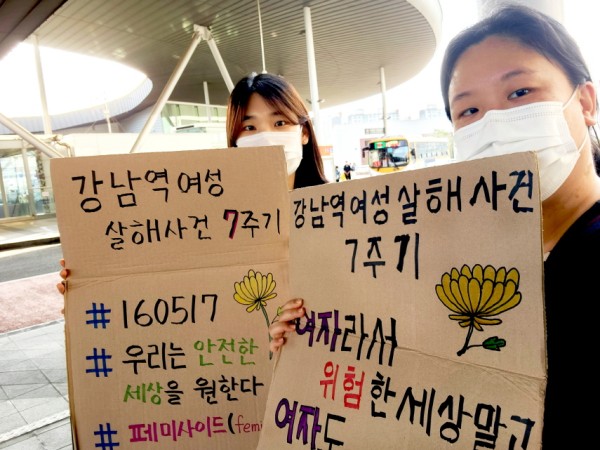 강남역 여성
살해사건 7주기
# 160517
# 우리는 안전한
세상을 원한다
# 페미사이드(fem
강남역 여성 살해 사건
7주기
여자라서
위험한 세상말고
여자도